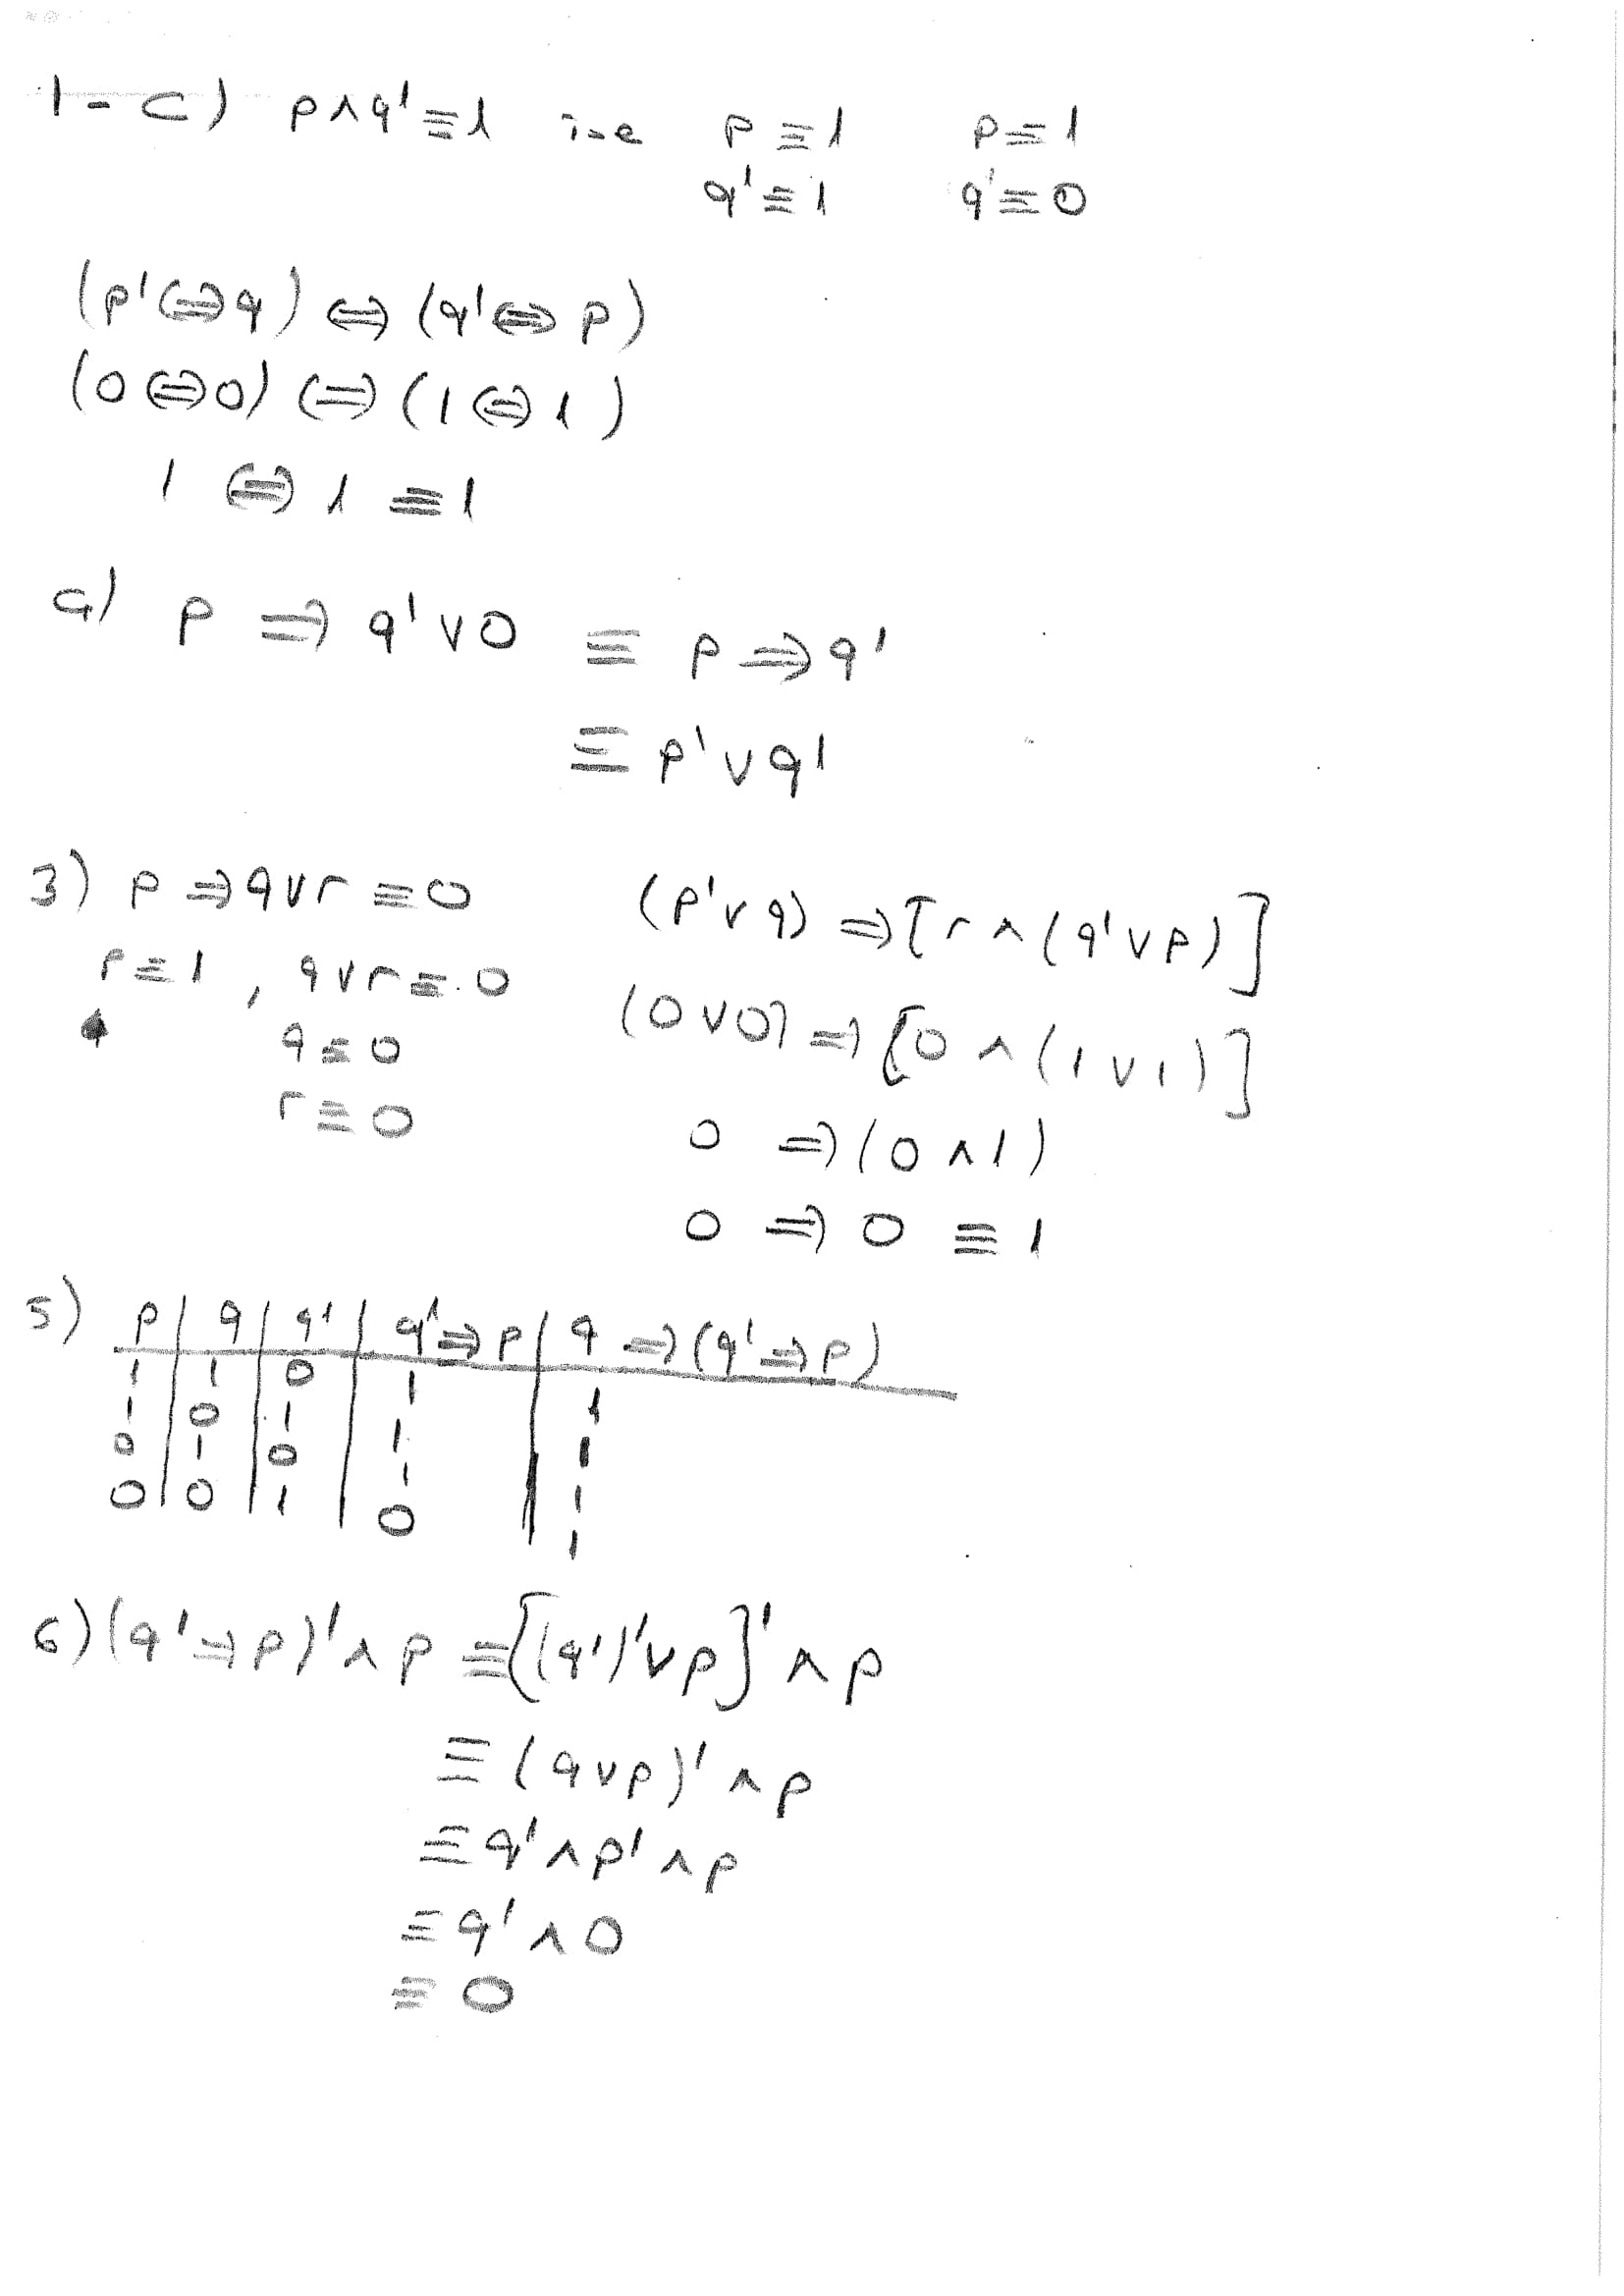 1-c) p∧q'≡1 ise p≡1 p≡1
q'≡1 q'≡0
(p'⇔q)⇔(q'⇔p)
(0⇔0)⇔(1⇔1)
1⇔1≡1
a) p⇒q'∨0≡p⇒q'
≡p'∨q'
3) p⇒q∨r≡0
p≡1, q∨r≡0
q≡0
r≡0
(p'∨q)⇒[r∧(q'∨p)]
(0∨0)⇒[0∧(1∨1)]
0⇒(0∧1)
0⇒0≡1
5) p | q | q' | q'⇒p | q⇒(q'⇒p)
1 | 1 | 0 | 1 | 1
1 | 0 | 1 | 1 | 1
0 | 1 | 0 | 1 | 1
0 | 0 | 1 | 0 | 1
6) (q'⇒p)'∧p≡[(q')'∨p]'∧p
≡(q∨p)'∧p
≡q'∧p'∧p
≡q'∧0
≡0